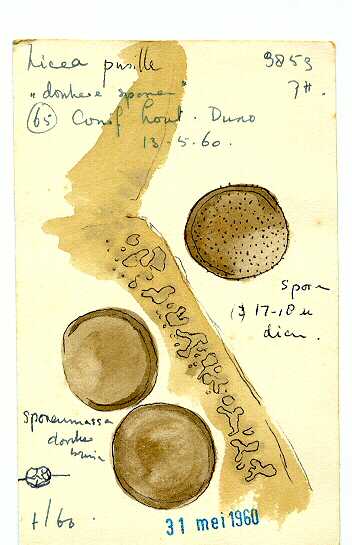 Licea pusilla 3853
"donkere sporen" 7H.
(65) Conif hout. Duno
13-5-60.
Spore
17-18 u
diam.
Sporenmassa
donker
bruin
31 mei 1960